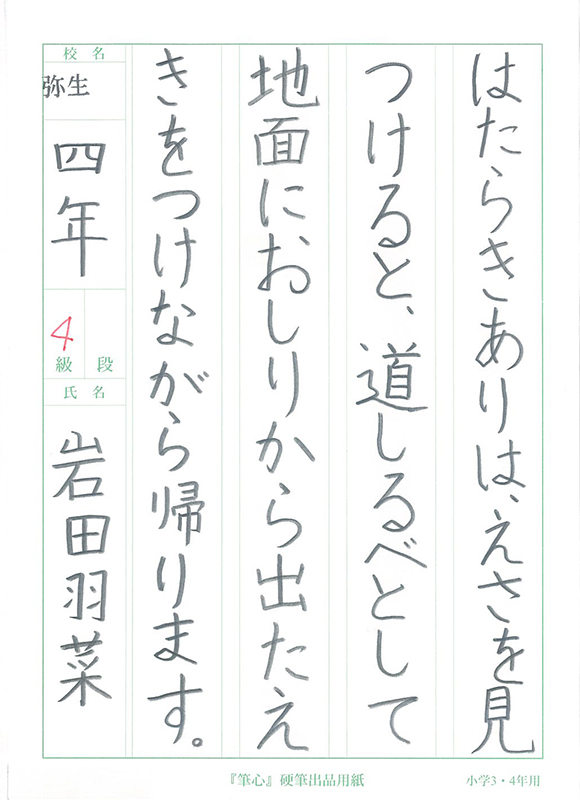 はたらきありは、えさを見
つけると、道しるべとして
地面におしりから出たえ
きをつけながら帰ります。
校名
弥生
四年
4
級 段
氏名
岩田羽菜
『筆心』硬筆出品用紙
小学3・4年用